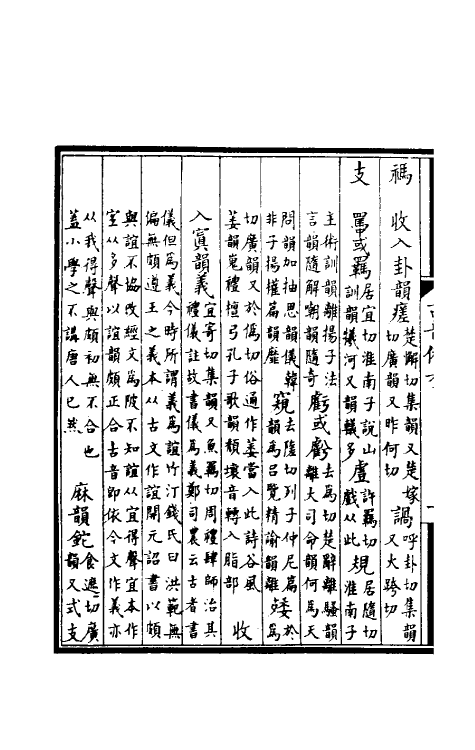 禡　收入卦韻瘥楚懈切集韻又楚嫁切廣韻又昨何切諣呼卦切集韻又火跨切
支　䍜或羈居宜切淮南子說山訓韻犧河又韻犧多䖒許羈切戲从此規居隨切淮南子
主術訓韻離揚子法言韻隨解嘲韻隨奇虧或𧇾去為切楚辭離騷韻離大司命韻何為天
問韻加抽思韻儀韓非子揚搉篇韻靡窺去隨切列子仲尼篇韻為呂覽精諭韻離矮於為
切廣韻又於偽切俗通作萎當入此詩谷風萎韻嵬禮檀弓孔子歌韻頹壞音轉入脂部　收
入寘韻義宜寄切集韻又魚羈切周禮肆師治其禮儀註故書儀為義鄭司農云古者書
儀但為義今時所謂義為誼竹汀錢氏曰洪範無偏無頗遵王之義本从古文作誼開元詔書以頗
與誼不協改經文為陂不知誼从宜得聲宜本作宐从多聲以誼韻頗正合古音即依今文作義亦
从我得聲與頗初無不合也蓋小學之不講唐人已然　麻韻鉈食遮切廣韻又式支